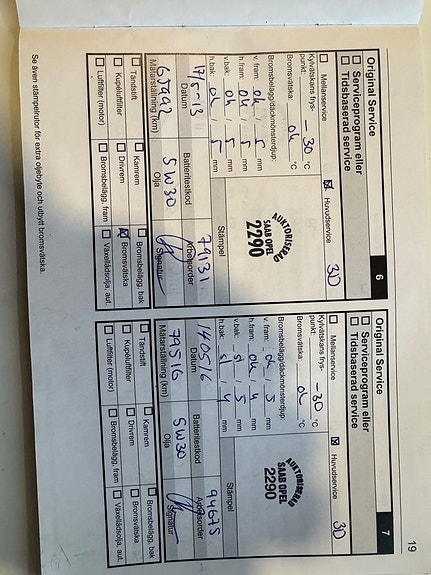 19
Original Service 6
☐ Serviceprogram eller
☐ Tidsbaserad service
☐ Mellanservice ☒ Huvudservice 3D
Kylvätskans frys-
punkt: -30 °C
Bromsvätska: ok °C
Bromsbelägg/däckmönsterdjup:
v. fram: ok / 5 mm
h.fram: ok / 5 mm
v.bak: ok / 5 mm
h.bak: ok / 5 mm
AUKTORISERAD
SAAB OPEL
2290
Stämpel
17/5-13 79131
Datum Batteritestkod Arbetsorder
5W30
Mätarställning (km) Olja Signatur
☐ Tändstift ☐ Kamrem ☐ Bromsbelägg, bak
☐ Kupéluftfilter ☐ Drivrem ☒ Bromsvätska
☐ Luftfilter (motor) ☐ Bromsbelägg, fram ☐ Växellådsolja, aut.
Original Service 7
☐ Serviceprogram eller
☐ Tidsbaserad service
☐ Mellanservice ☒ Huvudservice 3D
Kylvätskans frys-
punkt: -30 °C
Bromsvätska: ok °C
Bromsbelägg/däckmönsterdjup:
v. fram: ok / 5 mm
h.fram: ok / 4 mm
v.bak: / 5 mm
h.bak: / 4 mm
AUKTORISERAD
SAAB OPEL
2290
Stämpel
140516 94675
Datum Batteritestkod Arbetsorder
79516 5W30
Mätarställning (km) Olja Signatur
☐ Tändstift ☐ Kamrem ☐ Bromsbelägg, bak
☐ Kupéluftfilter ☐ Drivrem ☐ Bromsvätska
☐ Luftfilter (motor) ☐ Bromsbelägg, fram ☐ Växellådsolja, aut.
Se även stämpelrutor för extra oljebyte och utbytt bromsvätska.